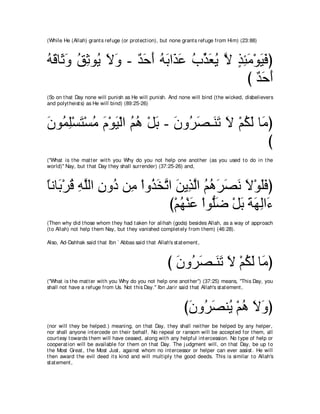 (While He (Allah) grants refuge (or protection), but none grants refuge from Him) (23:88)
فَيَوْمَئِذٍ لاَّ يُعَذِّبُ عَذَابَهُ أَحَدٌ - وَلاَ يُوثِقُ وَثَاقَهُ
أَحَدٌ )
(So on that Day none will punish as He will punish. And none will bind (the wicked, disbelievers
and polytheists) as He will bind) (89:25-26)
مَا لَكُمْ لاَ تَنَـصَرُونَ - بَلْ هُمُ الْيَوْمَ مُسْتَسْلِمُونَ
)
("What is the matter with you Why do you not help one another (as you used to do in the
world)'' Nay, but that Day they shall surrender) (37:25-26) and,
(فَلَوْلاَ نَصَرَهُمُ الَّذِينَ اتَّخَذُواْ مِن دُونِ اللَّهِ قُرْبَاناً
ءَالِهَةَ بَلْ ضَلُّواْ عَنْهُمْ)
(Then why did those whom they had taken for alihah (gods) besides Allah, as a way of approach
(to Allah) not help them Nay, but they vanished completely from them) (46:28).
Also, Ad-Dahhak said that Ibn `Abbas said that Allah's statement,
(مَا لَكُمْ لاَ تَنَـصَرُونَ )
("What is the matter with you Why do you not help one another'') (37:25) means, "This Day, you
shall not have a refuge from Us. Not this Day.'' Ibn Jarir said that Allah's statement,
(وَلاَ هُمْ يُنصَرُونَ)
(nor will they be helped.) meaning, on that Day, they shall neither be helped by any helper,
nor shall anyone intercede on their behalf. No repeal or ransom will be accepted for them, all
courtesy towards them will have ceased, along with any helpful intercession. No type of help or
cooperation will be available for them on that Day. The judgment will, on that Day, be up to
the Most Great, the Most Just, against whom no intercessor or helper can ever assist. He will
then award the evil deed its kind and will multiply the good deeds. This is similar to Allah's
statement,